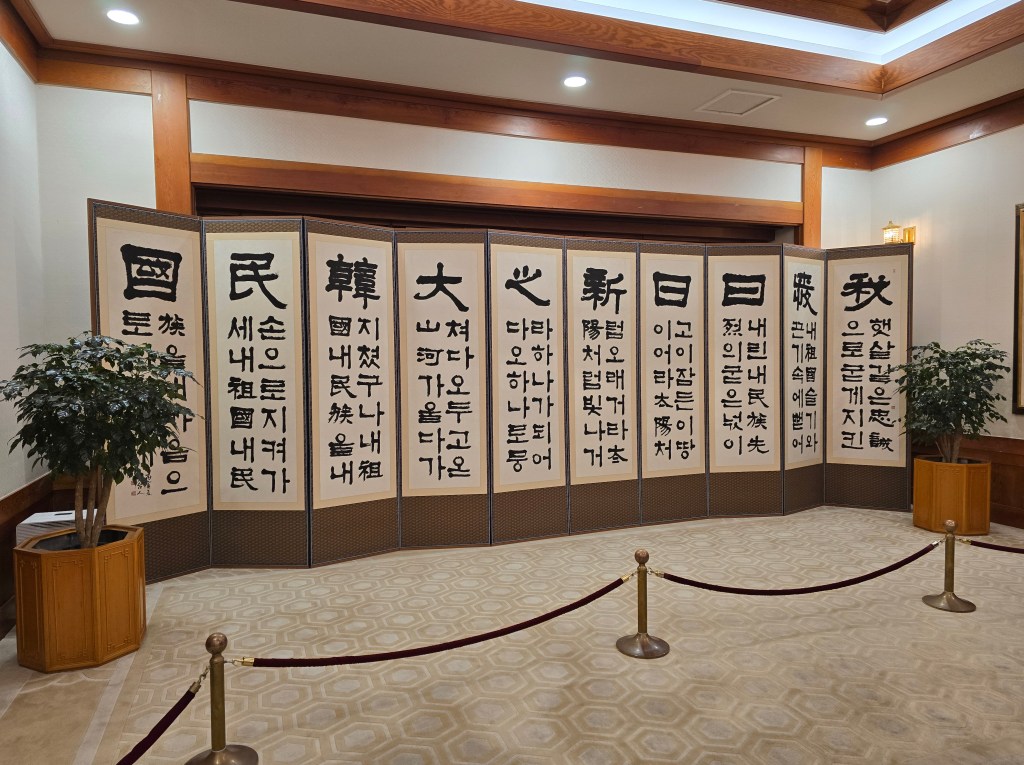 我
햇살같은忠誠
으로굳게지킨
愛
내祖國슬기와
끈기속에뻗어
日
내린내民族先
烈의굳은넋이
日
고이잠든이땅
이어라太陽처
新
럼오래거라太
陽처럼빛나거
之
라하나가되어
다오하나로뭉
大
쳐다오두고온
山河가울다가
韓
지쳤구나내祖
國내民族을내
民
손으로지켜가
세내祖國내民
國
族을내마음으
로